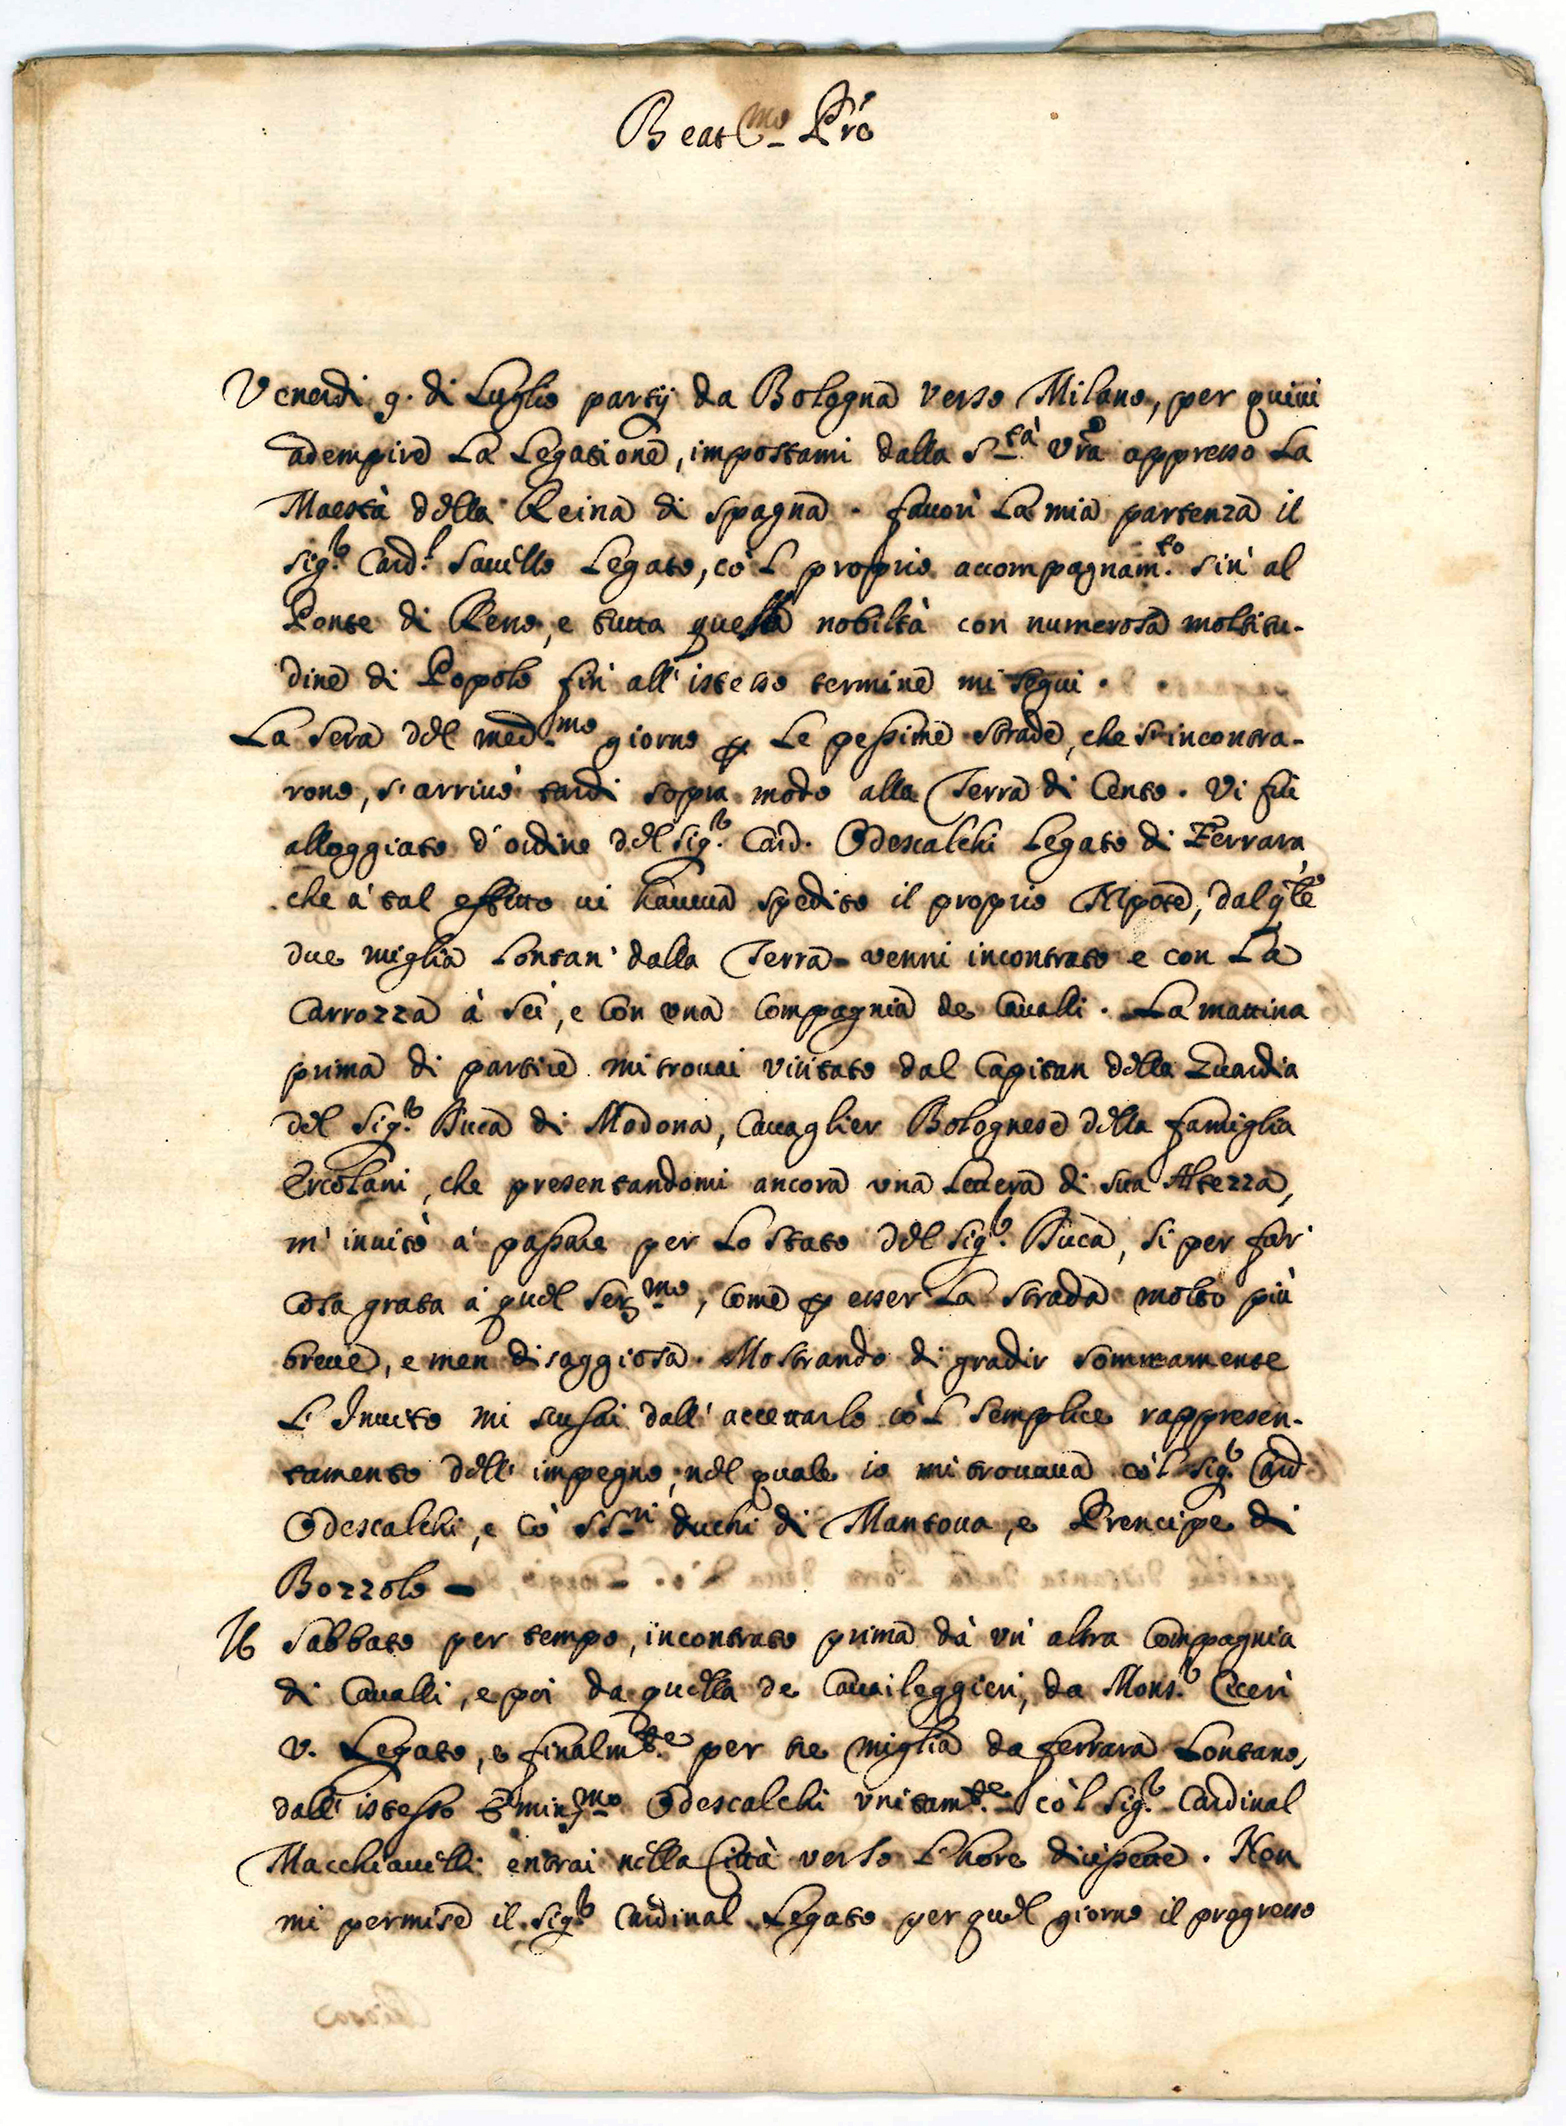 Beat.mo Pre
Venerdi 9. di Luglio partij da Bologna verso Milano, per quiui
adempire La Legatione, impostami dalla S.tà Vra appresso La
Maestà della Reina di Spagna. fauorì La mia partenza il
Sig.r Card.l Sauello Legato, cò'L proprio accompagnam.to sin' al
Ponte di Reno, e tutta quella nobiltà con numerosa moltitu-
dine di Popolo fin' all' istesso termine mi seguì.
La sera del med.mo giorno p Le pessime strade, che s'incontra-
rono, s'arriuò tardi sopra modo alla Terra di Cento. Vi fui
alloggiato d'ordine del Sig.r Card. Odescalchi Legato di Ferrara
che à tal effetto ui haueua spedito il proprio Nipote, dal qle
due miglia Lontan' dalla Terra venni incontrato e con La
Carrozza à Sei, e con vna Compagnia de Caualli. La mattina
prima di partire mi trouai visitato dal Capitan della Guardia
del Sig.r Duca di Modona, Cauaglier Bolognese della famiglia
Ercolani, che presentandomi ancora vna Lettera di sua Altezza,
m'inuitò à passare per Lo Stato del Sig.r Duca, si per far
cosa grata à quel Ser.mo, come p esser La strada molto più
breue, e men disaggiosa. Mostrando di gradir sommamente
L'Inuito mi scusai dall' accettarlo cò'L semplice rappresen-
tamento dell' impegno, nel quale io mi trouaua cò'l Sig.r Card
Odescalchi, e cò SS.ri duchi di Mantoua, e Prencipe di
Bozzolo -
Il Sabbato per tempo, incontrato prima dà vn' altra Compagnia
di Caualli, e poi da quella de Cauaileggieri, da Mons.r Ciceri
V. Legato, e finalm.te per tre miglia da ferrara Lontano,
dall' istesso Emin.mo Odescalchi vnitam.te cò'l Sig.r Cardinal
Macchiauelli entrai nella Città verso L'hore dicisette. Non
mi permise il Sig.r Cardinal Legato per quel giorno il progresso